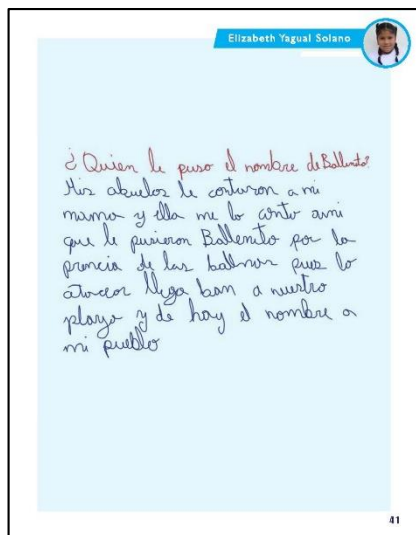 Elizabeth Yagual Solano
¿Quien le puso el nombre de Ballenito?
Mis abuelos le contaron a mi
mama y ella me lo conto ami
que le pusieron Ballenito por la
de las pues lo
llega ban a nuestro
playa y de hay el nombre a
mi pueblo
41